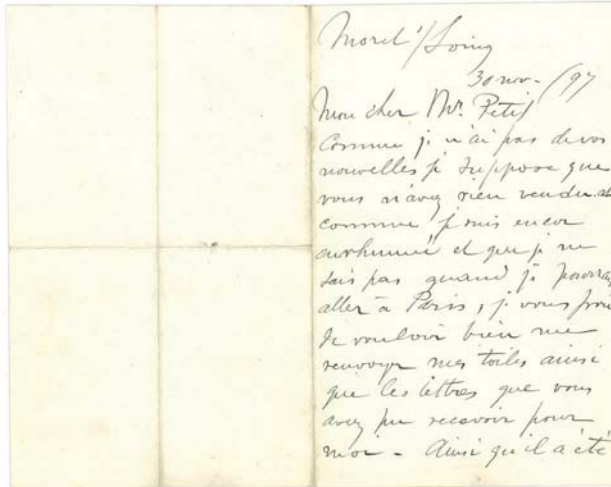 Moret s/Loing
30 nov. /97
Mon cher Mr. Petit
Comme je n'ai pas de vos
nouvelles je suppose que
vous n'avez rien vendu. et
comme je suis encor
enrhumé et que je ne
sais pas quand je pourrai
aller à Paris, je vous prie
de vouloir bien me
renvoyer mes toiles ainsi
que les lettres que vous
avez pu recevoir pour
moi - Ainsi qu'il a été